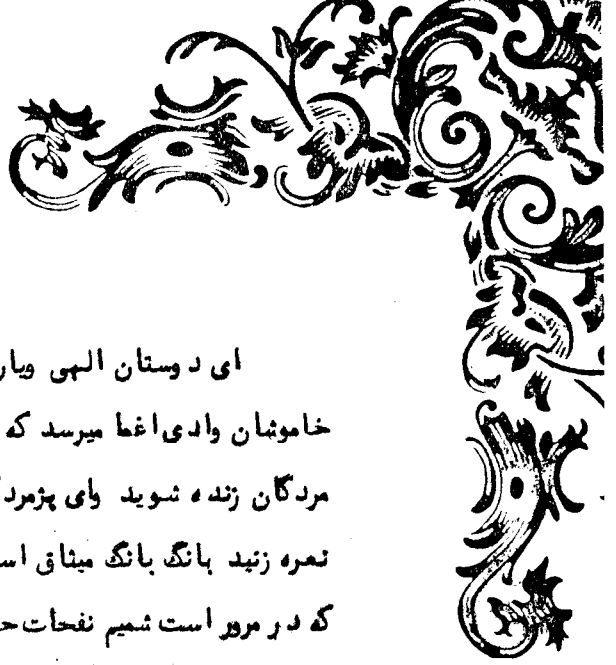 ای دوستان الهی ویار
خاموشان وادی اغما میرسد که
مردگان زنده شوید وای پژمرد
نعره زنید بانگ بانگ میثاق اس
که در مرور است شمیم نفحات ح